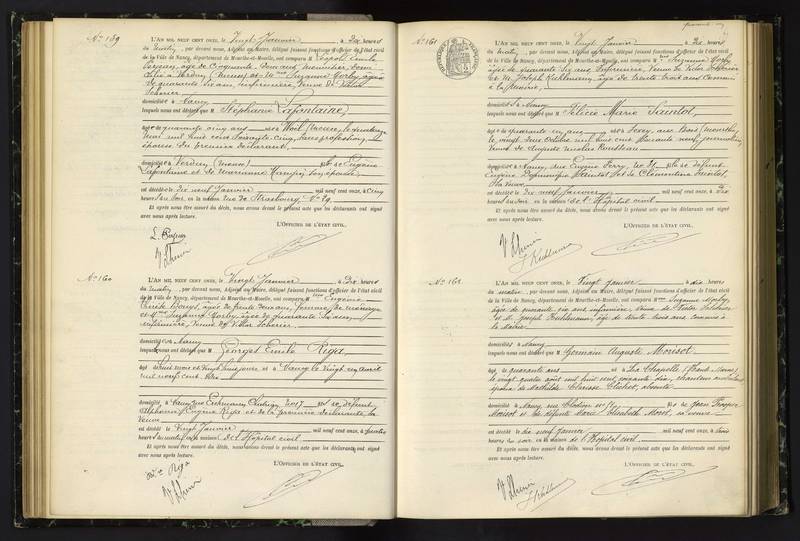 No 159
L'An mil neuf cent onze, le Vingt Janvier à Dix heures
du matin, par devant nous, Adjoint au Maire, délégué faisant fonctions d'officier de l'état civil
de la Ville de Nancy, département de Meurthe-et-Moselle, ont comparu M Léopold Emile
âgé de Cinquante
Verdun (Meuse) et Mme Suzanne Gorby, âgée
de quarante six ans, infirmière, Veuve de Victor
Scherier
domiciliés à Nancy
lesquels nous ont déclaré que M Stéphanie Lafontaine,
âgée de quarante cinq ans née à (Meuse), le
Mai mil huit cent soixante cinq, sans profession,
épouse du premier déclarant,
domiciliée à Verdun (Meuse) fille de Eugène
Lafontaine et de Marianne son épouse
est décédée le dix neuf Janvier mil neuf cent onze, à Cinq
heures du soir, en la maison rue de Strasbourg, No 29
Et après nous être assuré du décès, nous avons dressé le présent acte que les déclarants ont signé
avec nous après lecture.
L'OFFICIER DE L'ÉTAT CIVIL,
No 160
L'An mil neuf cent onze, le Vingt Janvier à Dix heures
du matin, par devant nous, Adjoint au Maire, délégué faisant fonctions d'officier de l'état civil
de la Ville de Nancy, département de Meurthe-et-Moselle, ont comparu Mme Eugénie
âgée de trente deux ans, femme de ménage
et Mme Suzanne Gorby, âgée de quarante six ans,
infirmière, Veuve de Victor Scherier
domiciliés à Nancy
lesquels nous ont déclaré que M Georges Emile Riga,
âgé de huit mois et vingt huit jours né à Nancy le vingt deux Avril
mil neuf cent dix
domicilié à Nancy, rue No 7 fils de défunt
Alphonse Eugène Riga et de la première déclarante, sa
Veuve
est décédé le Vingt Janvier mil neuf cent onze, à quatre
heures du matin, en la maison de l'Hôpital civil
Et après nous être assuré du décès, nous avons dressé le présent acte que les déclarants ont signé
avec nous après lecture.
L'OFFICIER DE L'ÉTAT CIVIL,
Riga
No 161
L'An mil neuf cent onze, le Vingt Janvier à Dix heures
du matin, par devant nous, Adjoint au Maire, délégué faisant fonctions d'officier de l'état civil
de la Ville de Nancy, département de Meurthe-et-Moselle, ont comparu Mme Suzanne Gorby,
âgée de quarante six ans, infirmière, Veuve de Victor Scherier
et M. Joseph Kuhlmann, âgé de trente trois ans, Commis
à la Mairie,
domiciliés à Nancy
lesquels nous ont déclaré que M Félicie Marie
âgée de quarante un ans née à Sexey aux Bois (Meurthe),
le vingt deux Octobre mil huit cent soixante neuf, journalière
Veuve de Auguste Nicolas
domiciliée à Nancy, rue Eugène Ferry, No 31 fille de défunt
Eugène Dominique et de Clémentine
sa Veuve
est décédée le dix neuf Janvier mil neuf cent onze, à Dix
heures du soir, en la maison de l'Hôpital civil
Et après nous être assuré du décès, nous avons dressé le présent acte que les déclarants ont signé
avec nous après lecture.
L'OFFICIER DE L'ÉTAT CIVIL,
J Kuhlmann
L'An mil neuf cent onze, le Vingt Janvier à dix heures
du matin, par devant nous, Adjoint au Maire, délégué faisant fonctions d'officier de l'état civil
de la Ville de Nancy, département de Meurthe-et-Moselle, ont comparu Mme Suzanne Gorby,
âgée de quarante six ans, infirmière, Veuve de Victor Scherier
et M. Joseph Kuhlmann, âgé de trente trois ans, commis à
la Mairie
domiciliés à Nancy
lesquels nous ont déclaré que M Germain Auguste Morisot
âgé de quarante ans né à La Chapelle (Haute Marne)
le vingt quatre août mil huit cent soixante dix, chanteur ambulant
époux de Mathilde Clarisse absente
domicilié à Nancy, rue Clodion No 11 fils de Jean Prosper
Morisot et de défunte Marie Elisabeth Morot, sa veuve
est décédé le dix neuf Janvier mil neuf cent onze, à trois
heures du soir, en la maison de l'Hôpital civil
Et après nous être assuré du décès, nous avons dressé le présent acte que les déclarants ont signé
avec nous après lecture.
L'OFFICIER DE L'ÉTAT CIVIL,
J Kuhlmann